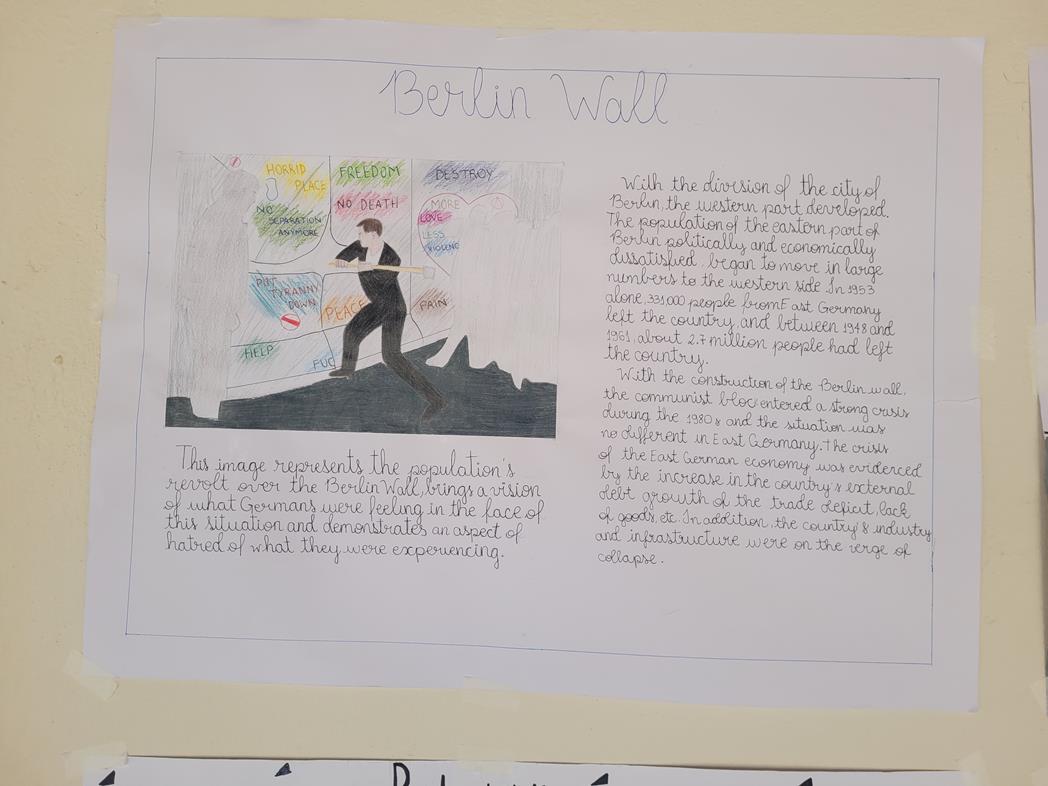 Berlin Wall
HORRID
PLACE
FREEDOM
DESTROY
NO
SEPARATION
ANYMORE
NO DEATH
MORE
LOVE
LESS
VIOLENC
PUT
TYRANNY
DOWN
PEACE
PAIN
HELP
FUC
This image represents the population's
revolt over the Berlin Wall, brings a vision
of what Germans were feeling in the face of
this situation and demonstrates an aspect of
hatred of what they were experiencing.
With the division of the city of
Berlin, the western part developed.
The population of the eastern part of
Berlin politically and economically
dissatisfied, began to move in large
numbers to the western side. In 1953
alone, 331.000 people from East Germany
left the country, and between 1948 and
1961, about 2.7 million people had left
the country.
With the construction of the Berlin wall,
the communist bloc entered a strong crisis
during the 1980s and the situation was
no different in East Germany. The crisis
of the East German economy was evidenced
by the increase in the country's external
debt growth of the trade deficit, lack
of goods, etc. In addition, the country's industry
and infrastructure were on the verge of
collapse.